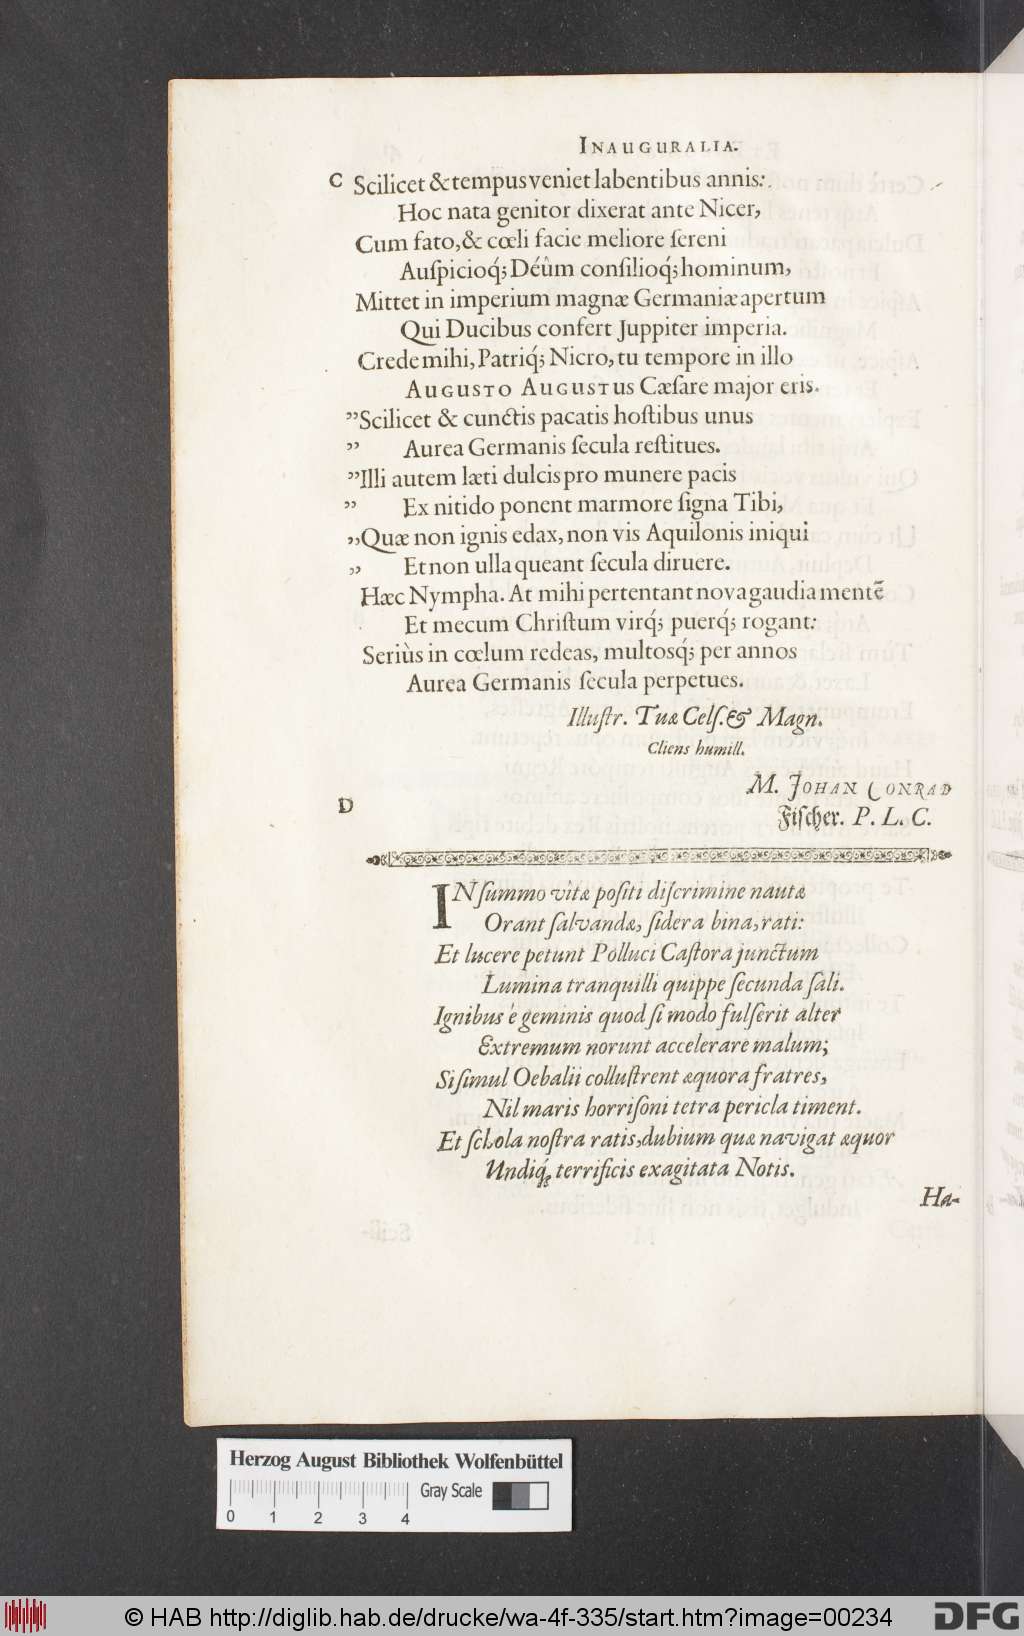 INAUGURALIA.
C Scilicet & tempus veniet labentibus annis:
Hoc nata genitor dixerat ante Nicer,
Cum fato, & cœli facie meliore ſereni
Auſpicioq́; Déûm conſilioq́; hominum,
Mittet in imperium magnæ Germaniæ apertum
Qui Ducibus confert Juppiter imperia.
Crede mihi, Patriq́; Nicro, tu tempore in illo
AUGUSTO AUGUSTus Cæſare major eris.
”Scilicet & cunctis pacatis hoſtibus unus
” Aurea Germanis ſecula reſtitues.
”Illi autem læti dulcis pro munere pacis
” Ex nitido ponent marmore ſigna Tibi,
„Quæ non ignis edax, non vis Aquilonis iniqui
„ Et non ulla queant ſecula diruere.
Hæc Nympha. At mihi pertentant nova gaudia mentẽ
Et mecum Chriſtum virq́; puerq́; rogant:
Seriùs in cœlum redeas, multosq́; per annos
Aurea Germanis ſecula perpetues.
Illuſtr. Tuæ Celſ. & Magn.
Cliens humill.
M. JOHAN CONRAD
D
Fiſcher. P. L. C.
IN ſummo vitæ poſiti diſcrimine nautæ
Orant ſalvandæ, ſidera bina, rati:
Et lucere petunt Polluci Caſtora junctum
Lumina tranquilli quippe ſecunda ſali.
Ignibus è geminis quod ſi modo fulſerit alter
Extremum norunt accelerare malum;
Si ſimul Oebalii colluſtrent æquora fratres,
Nil maris horriſoni tetra pericla timent.
Et ſchola noſtra ratis, dubium quæ navigat æquor
Undiq́; terrificis exagitata Notis.
Ha-
Herzog August Bibliothek Wolfenbüttel
Gray Scale
0 1 2 3 4
© HAB http://diglib.hab.de/drucke/wa-4f-335/start.htm?image=00234
DFG